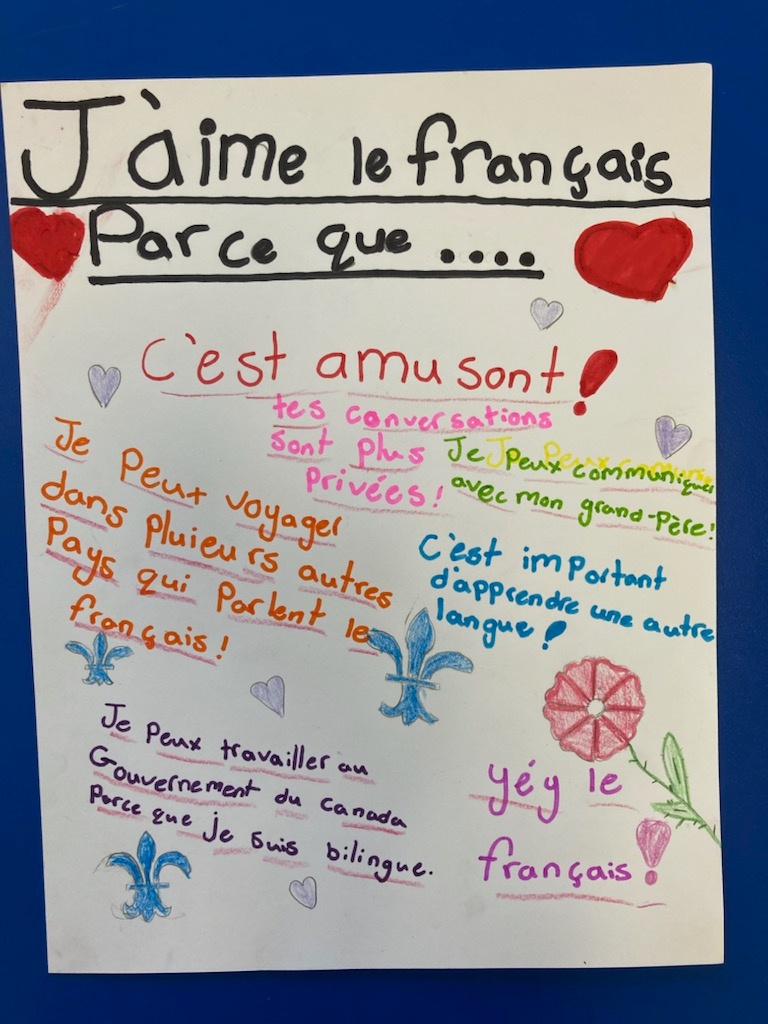 J'àime le français
Parce que ....
C'est amusont!
tes conversations
sont plus
privées!
Je peux communiquer
avec mon grand-père!
Je Peux voyager
dans pluieurs autres
Pays qui Parlent le
français!
C'est important
d'apprendre une autre
langue!
Je peux travailler au
Gouvernement du Canada
Parce que je suis bilingue.
yéy le
français!